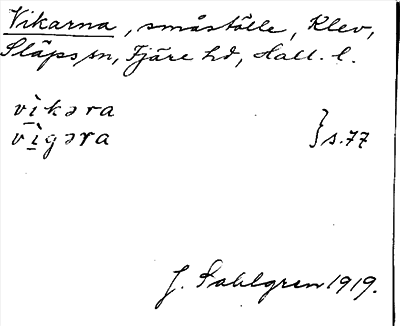 Vikarna, småställe, Klev,
Släps sn, Fjäre hd, Hall. l.
vì̱kəra
vì̱gəra } s. 77
J. Sahlgren 1919.